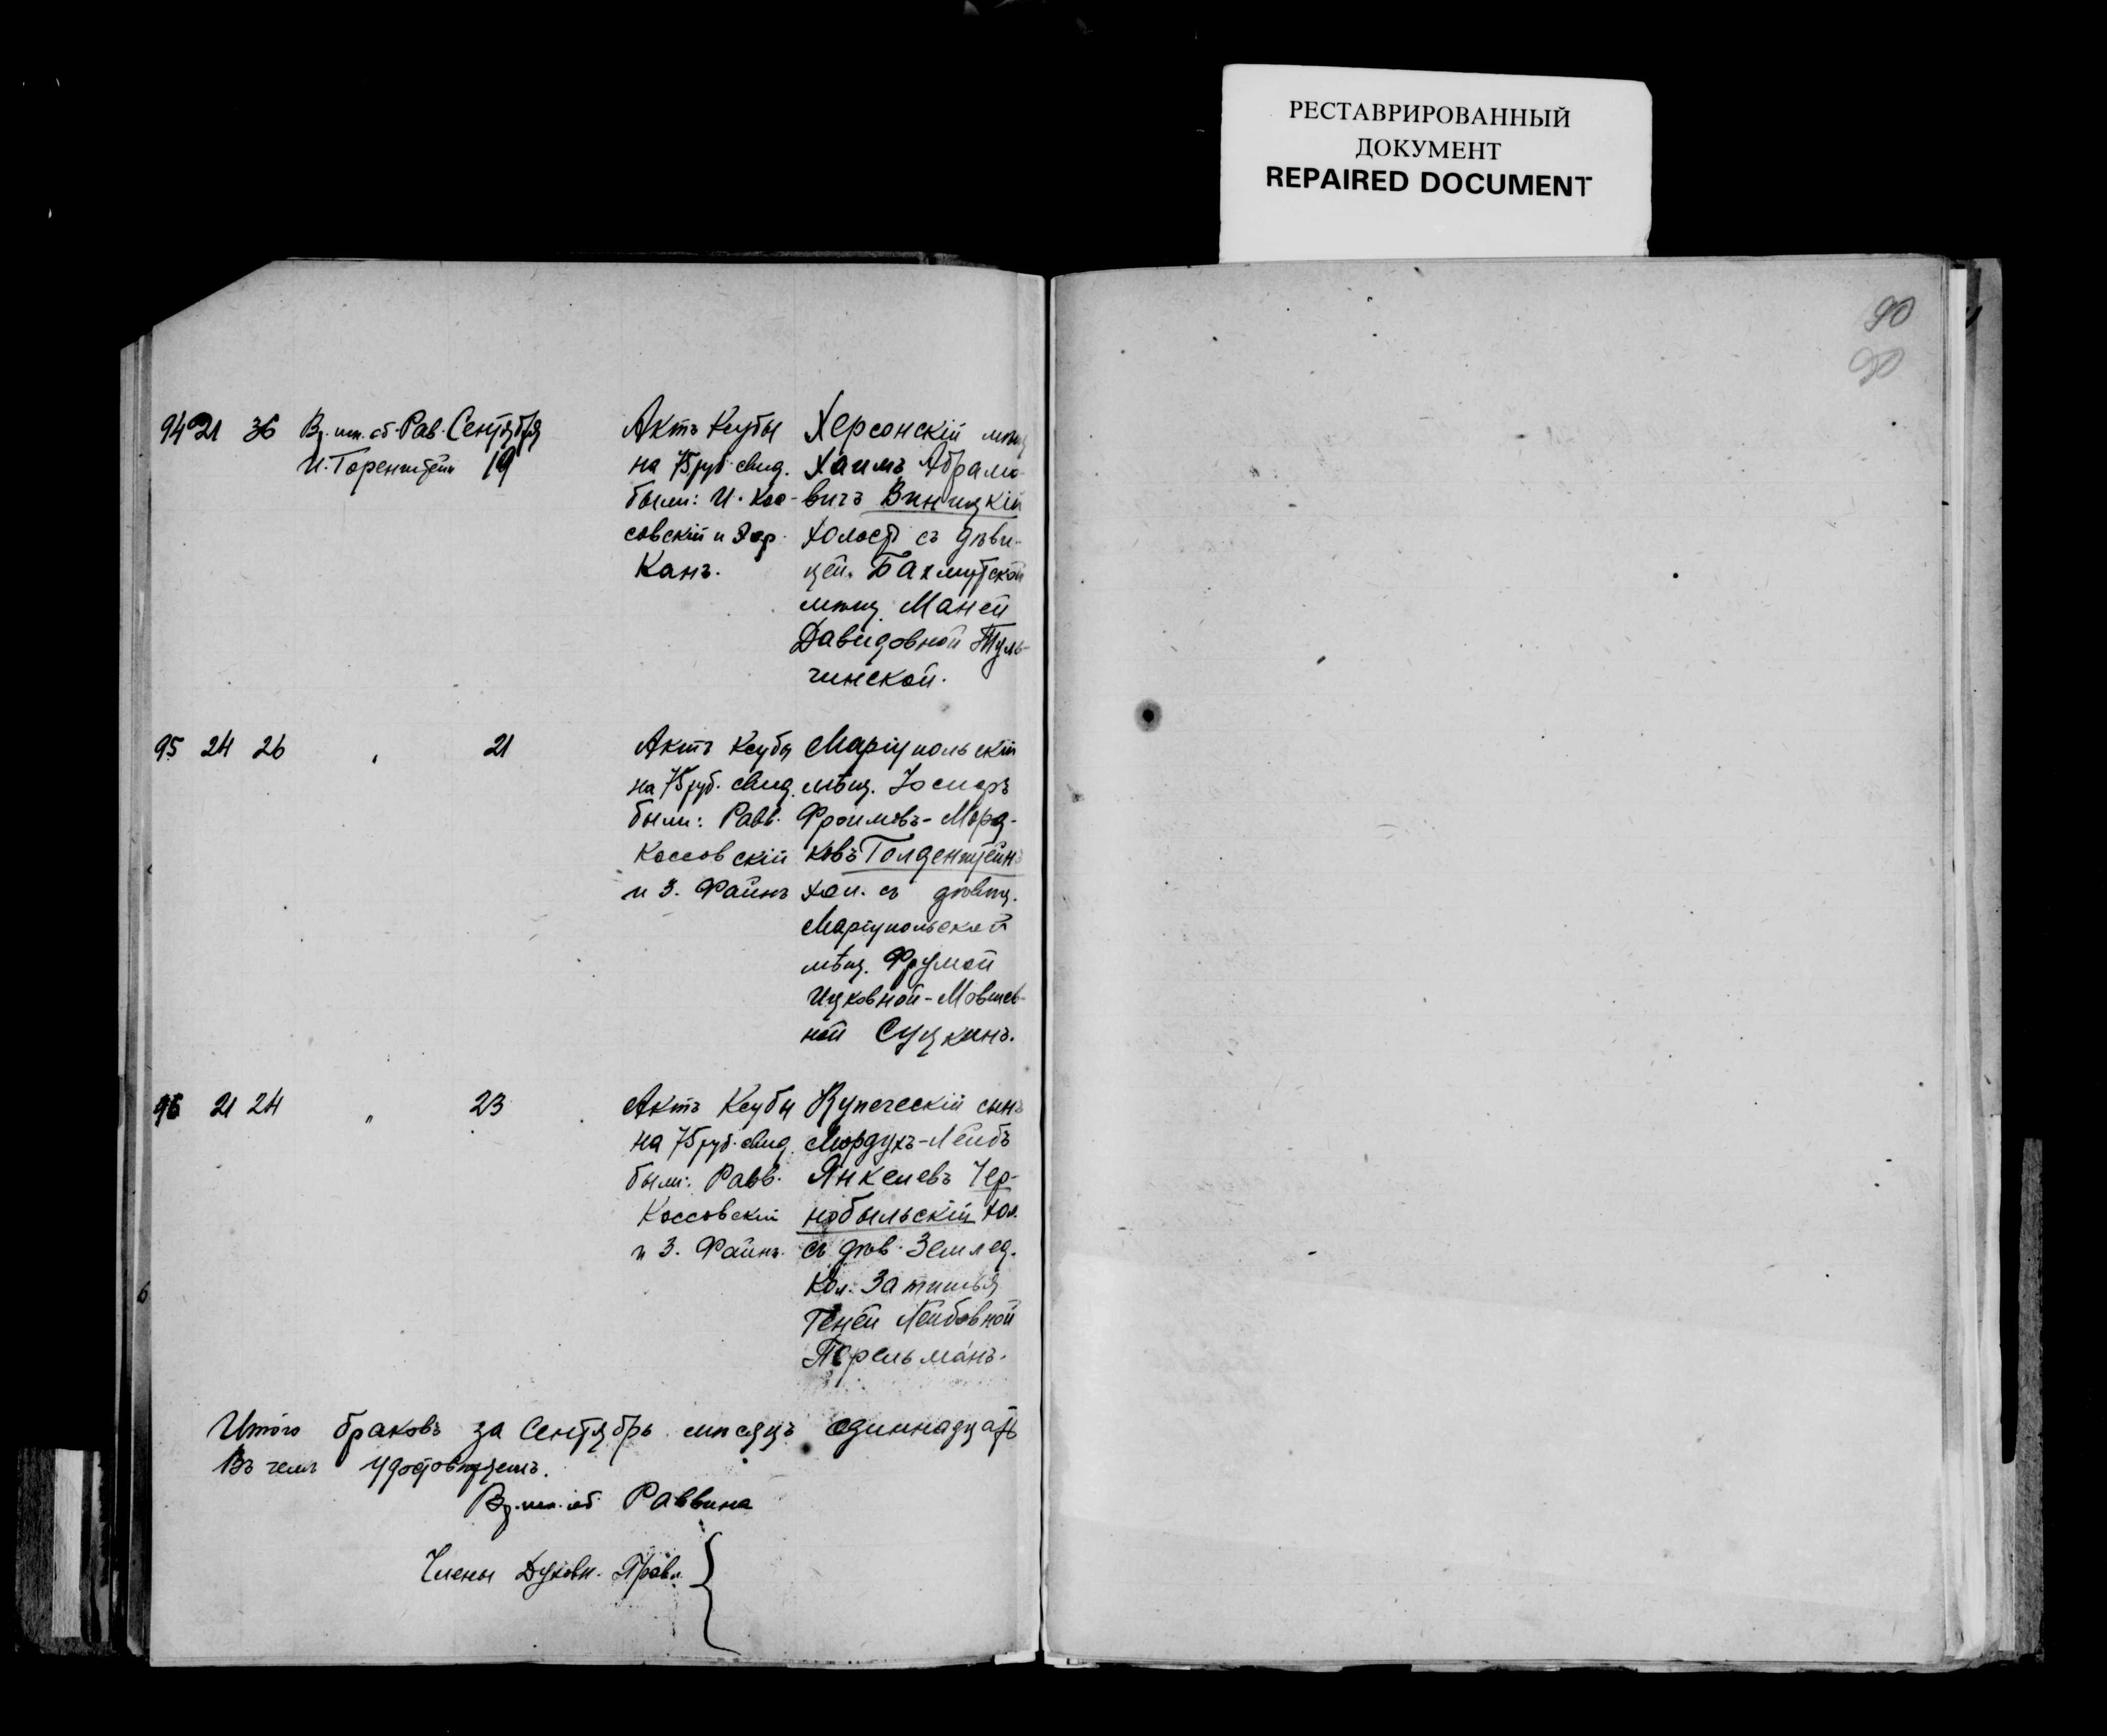 РЕСТАВРИРОВАННЫЙ
ДОКУМЕНТ
REPAIRED DOCUMENT
90
90
94 21 36 Вр. исп. об. Рав. Сентября
И. Горенштейн 19
Актъ Ксубы
на 75 руб. свид.
были: И. Кос-
совскій и
Канъ.
Херсонскій мѣщ
Хаимъ Абрамо-
вичъ Виницкій
холост съ дѣви-
цей. Бахмутской
мѣщ. Маней
Давидовной Туль-
чинской.
95 24 26 " 21
Актъ Ксубы
на 75 руб. свид.
были: Равв.
Коссовскій
и З. Файнъ
Маріупольскій
мѣщ. Іосифъ
Фроимовъ-Морд-
ковъ Голденштейнъ
хол. съ дѣвиц.
Маріупольской
мѣщ. Фрумой
Ицковной-Мовшев-
ной Суцкинъ.
96 21 24 " 23
Актъ Ксубы
на 75 руб. свид.
были: Равв.
Коссовскій
и З. Файнъ.
Купеческій сынъ
Мордухъ-Лейбъ
Янкелевъ Чер-
нобыльскій хол.
съ дѣв. Землед.
Кол. Затишья
Геней Лейбовной
Перельманъ.
Итого браковъ за Сентябрь мѣсяцъ одиннадцать
Въ чемъ удостовѣряемъ.
Вр. исп. об. Раввина
Члены Духовн. Правл.